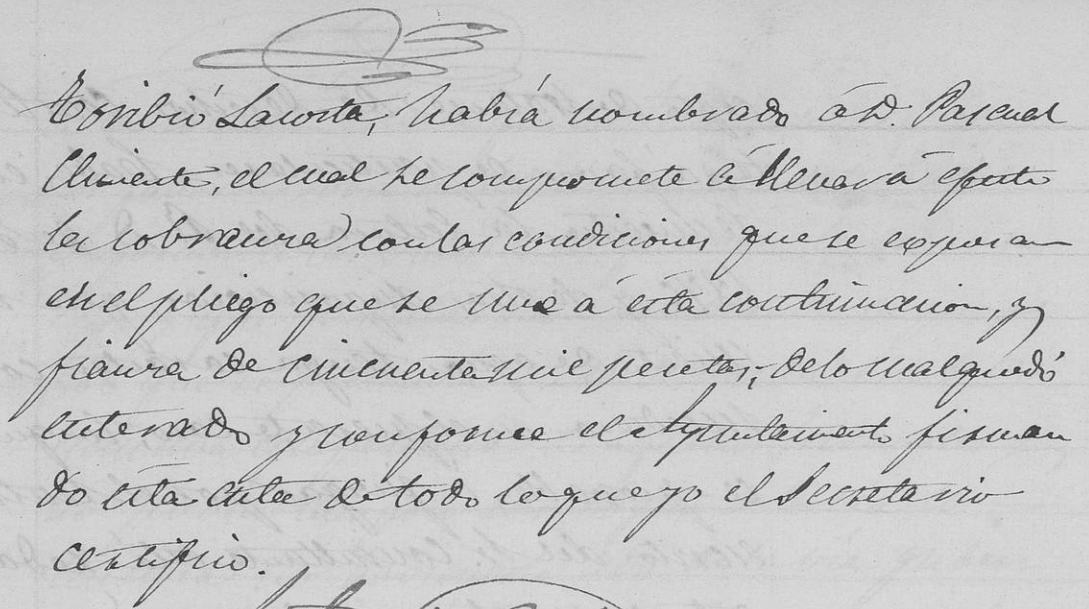 Toribio Lacosta, había nombrado á D. Pascual
Climente, el cual se compromete á llevar á efecto
la cobranza con las condiciones que se expresan
en el pliego que se une á esta continuacion, y
fianza de cincuenta mil pesetas; de lo cual quedó
enterado y conforme el Ayuntamiento firman
do esta acta de todo lo que yo el Secretario
certifico.